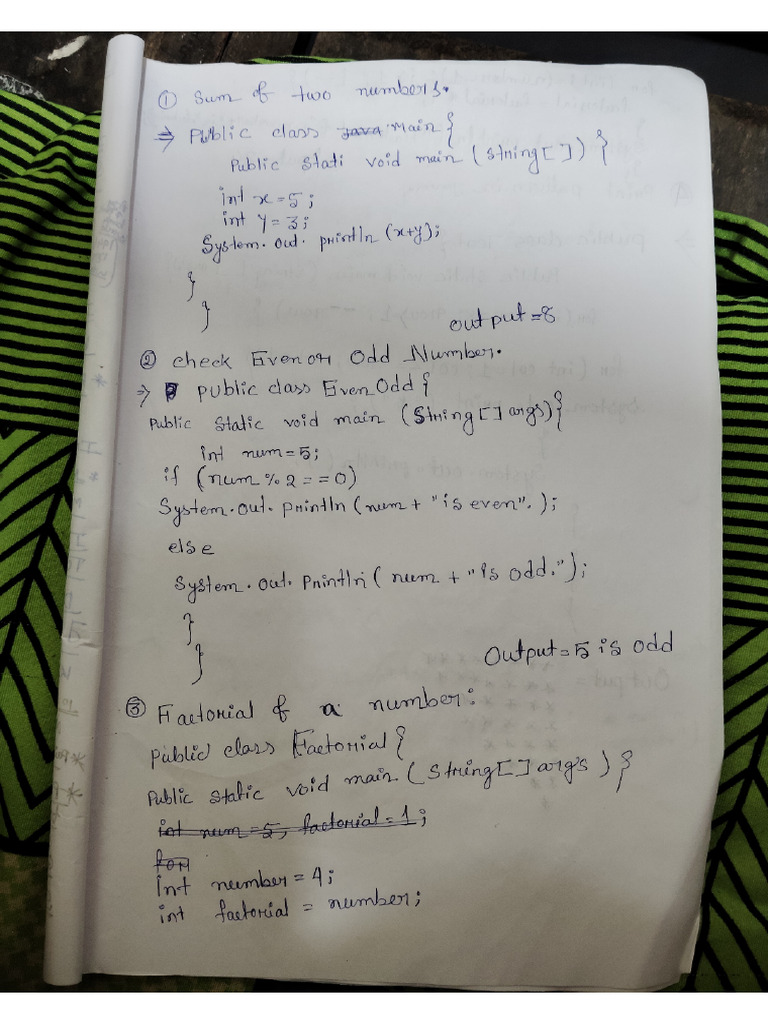 ① Sum of two numbers.
⇒ Public class java main {
Public Stati void main (String[ ]) {
int x = 5;
int y = 3;
System.out.println (x+y);
}
}
output = 8
② check Even or Odd Number.
⇒ public class EvenOdd {
Public Static void main (String[ ] args) {
int num = 5;
if (num % 2 = = 0)
System.out.println (num + "is even". );
else
System.out.println ( num + "is odd.");
}
}
Output = 5 is odd
③ Factorial of a number:
public class Factorial {
Public static void main (String[ ] args ) }
int num = 5, factorial = 1;
for
int number = 4;
int factorial = number;